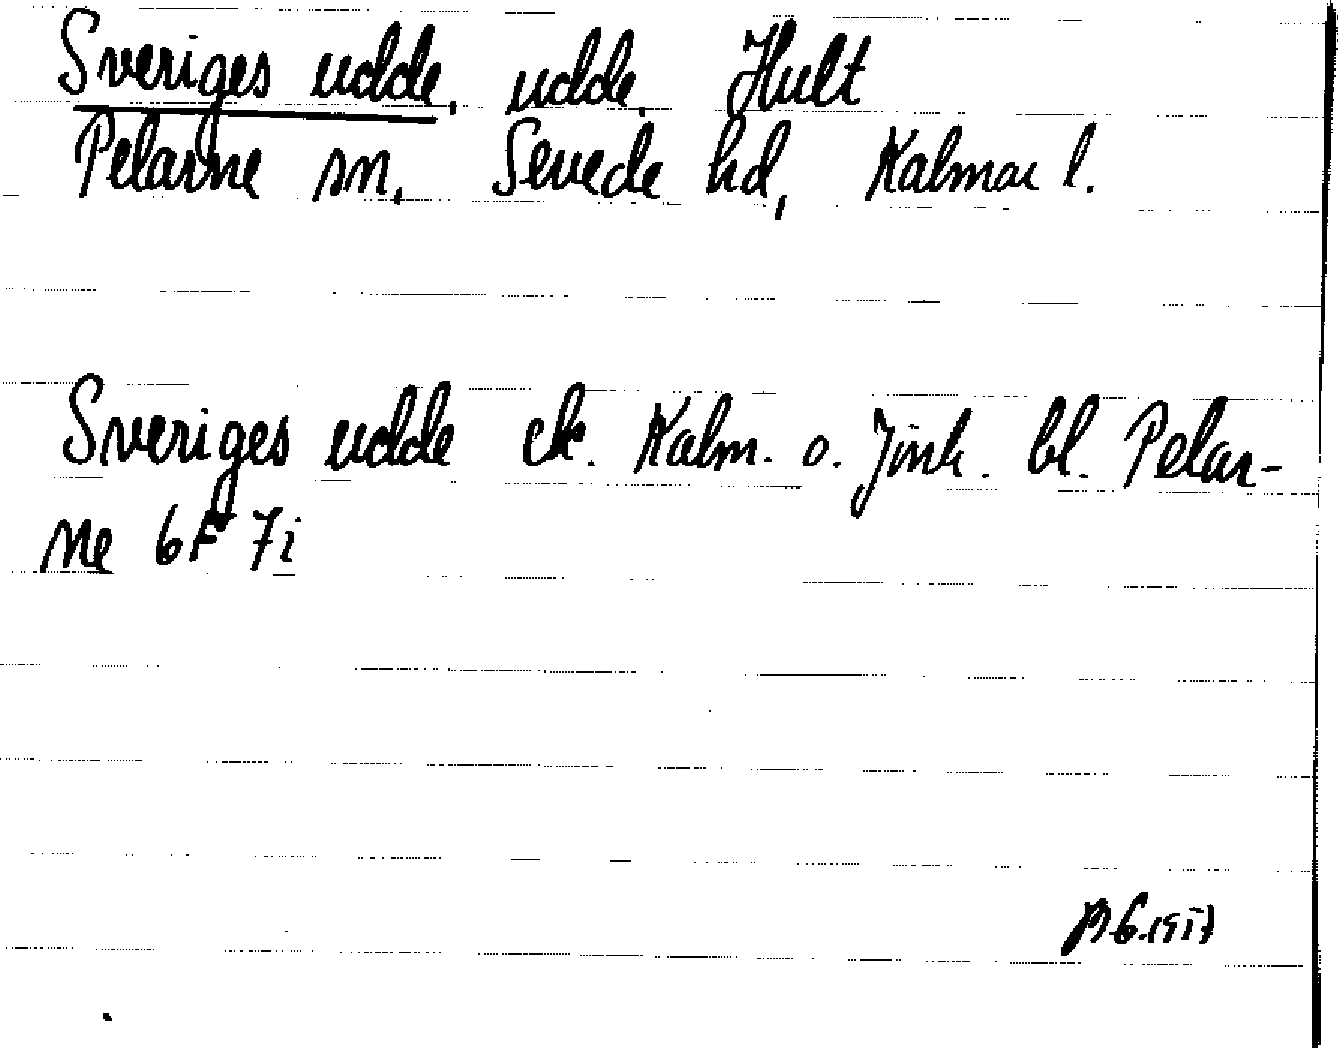 Sveriges udde, udde, Hult
Pelarne sn, Sevede hd, Kalmar l.
Sveriges udde ek. Kalm. o. Jönk. bl. Pelar-
ne 6F 7i
1957